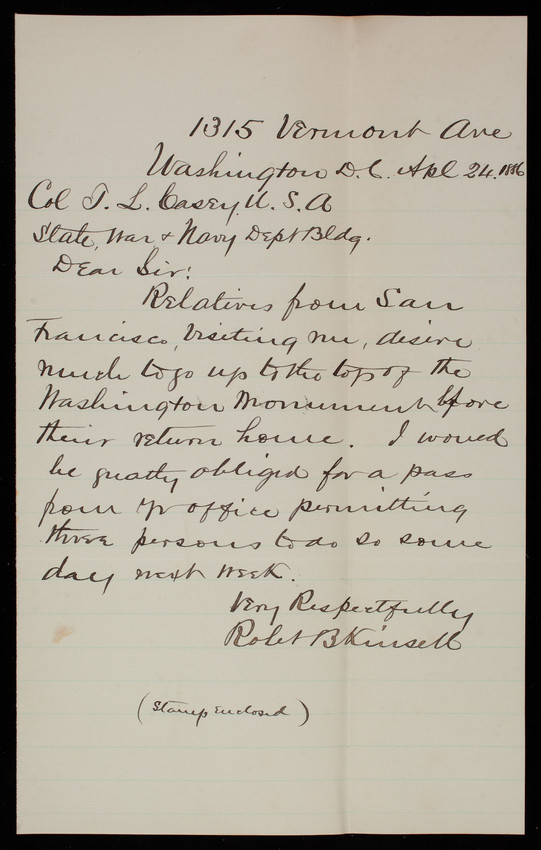 1315 Vermont Ave
Washington D.C. Apl 24. 1886
Col T. L. Casey. U. S. A
State, War & Navy Dept Bldg.
Dear Sir:
Relatives from San
Francisco, visiting me, desire
much to go up to the top of the
Washington Monument before
their return home. I would
be greatly obliged for a pass
from yr office permitting
three persons to do so some
day next week.
Very Respectfully
Robt B Kinsell
(Stamp enclosed)